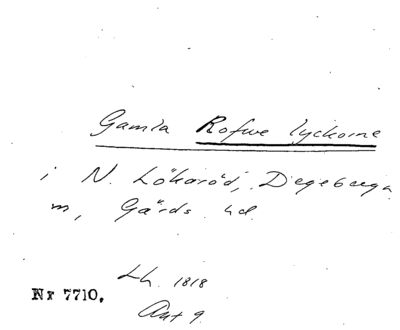 Gamla Rofwe lyckorne
i N. Lökaröd, Degeberga
m, Gärds hd.
Lh. 1818
Akt 9.
Nr 7710.